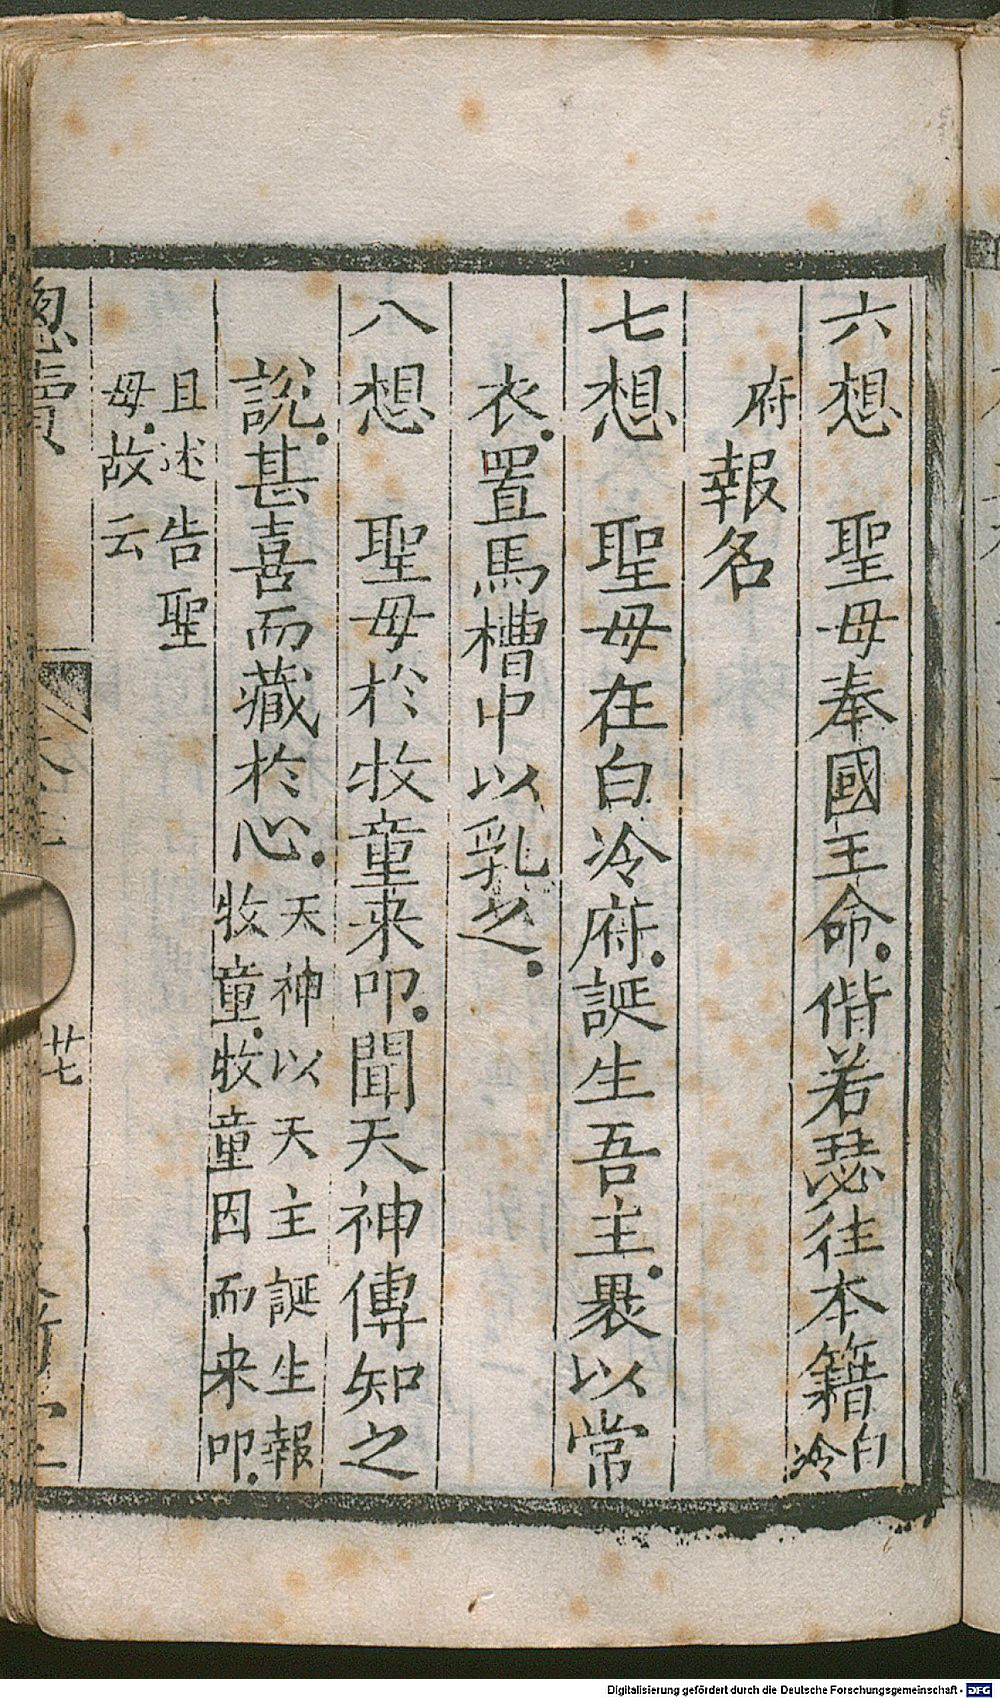 六想　聖母奉國王命.偕若瑟往本籍白冷
府報名
七想　聖母在白冷府.誕生吾主.裹以常
衣.置馬槽中以乳之.
八想　聖母於牧童来叩.聞天神傳知之
說.甚喜而藏於心.天神以天主誕生報
牧童.牧童因而来叩.
且述告聖
母.故云
廿七
Digitalisierung gefördert durch die Deutsche Forschungsgemeinschaft - DFG